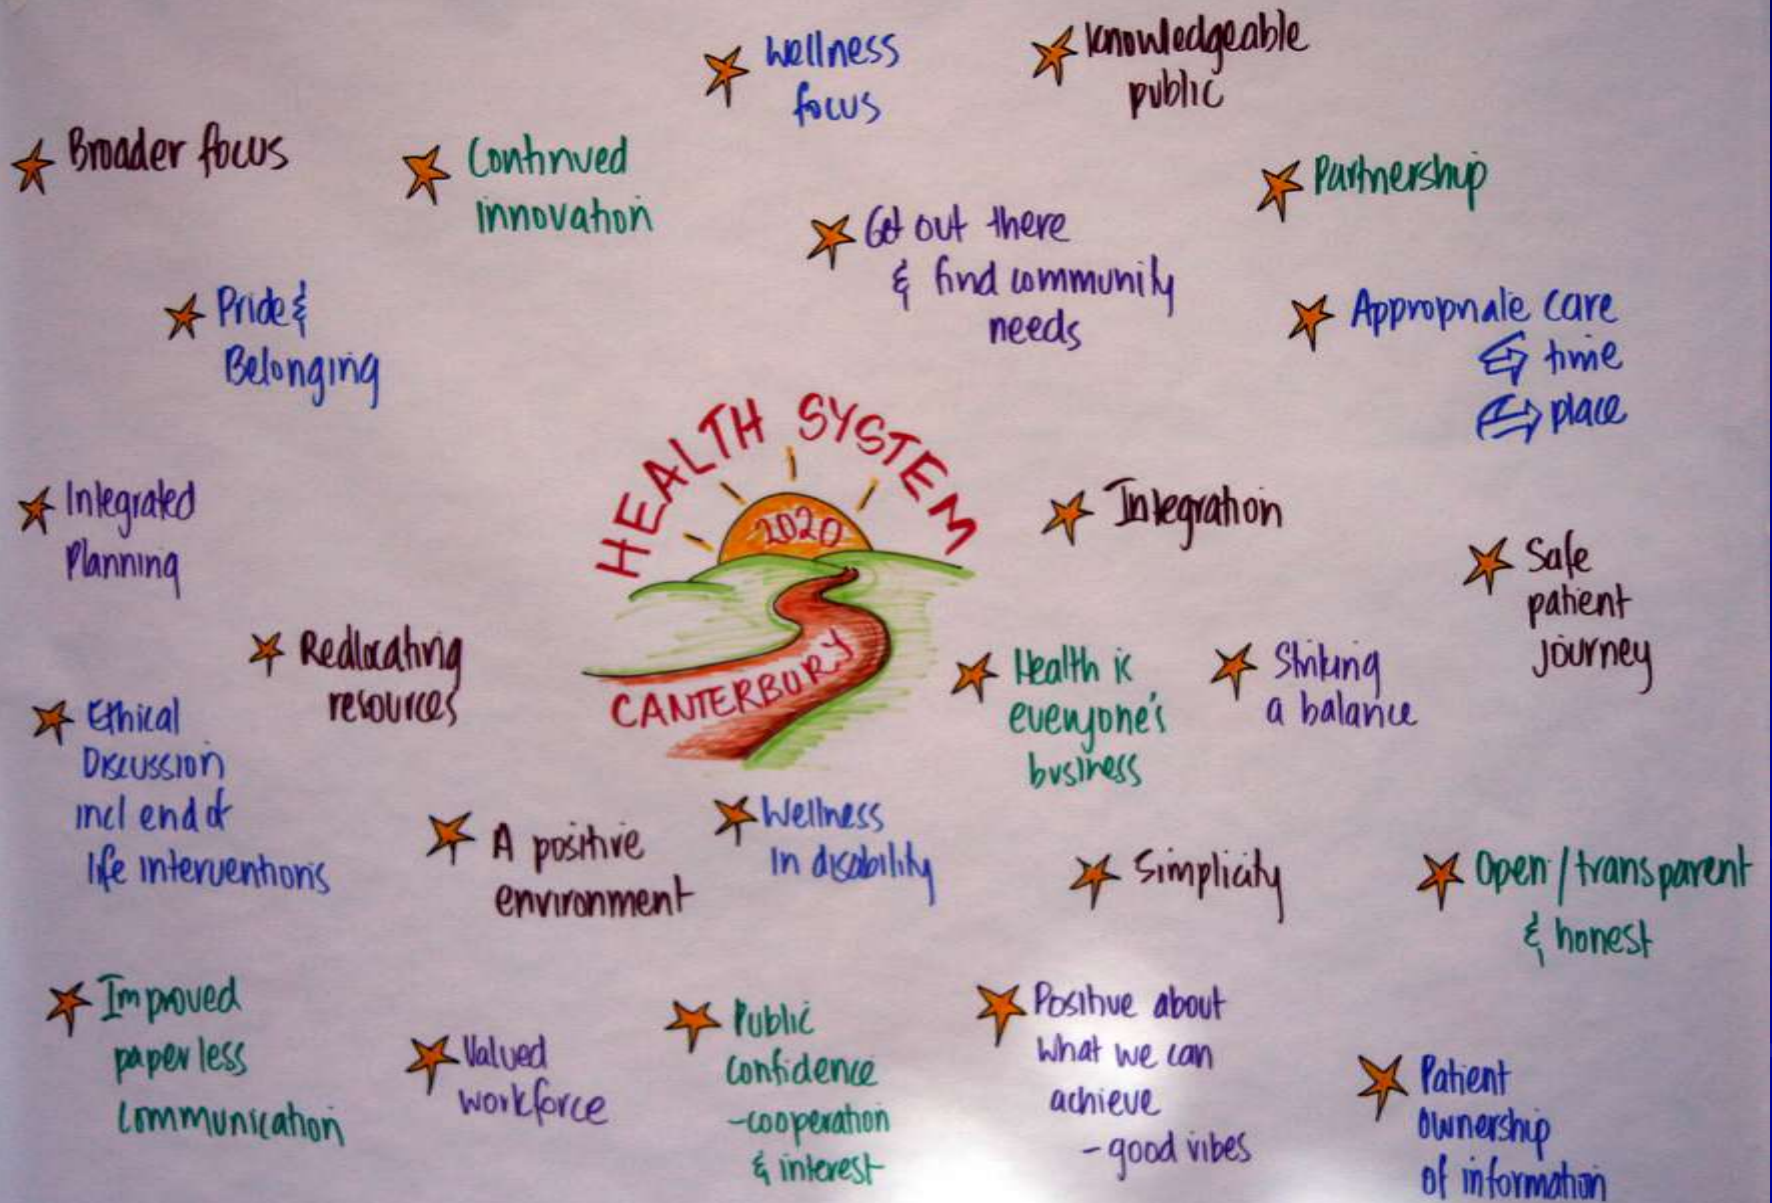 Wellness
focus
Knowledgeable
public
Broader focus
Continued
innovation
Partnership
Get out there
& find community
needs
Pride &
Belonging
Appropriate care
time
place
HEALTH SYSTEM
2020
CANTERBURY
Integrated
Planning
Integration
Safe
patient
journey
Reallocating
resources
Health is
everyone's
business
Striking
a balance
Ethical
Discussion
incl end of
life interventions
A positive
environment
Wellness
in disability
Simplicity
Open / transparent
& honest
Improved
paperless
communication
Valued
workforce
Public
confidence
- cooperation
& interest
Positive about
what we can
achieve
- good vibes
Patient
ownership
of information